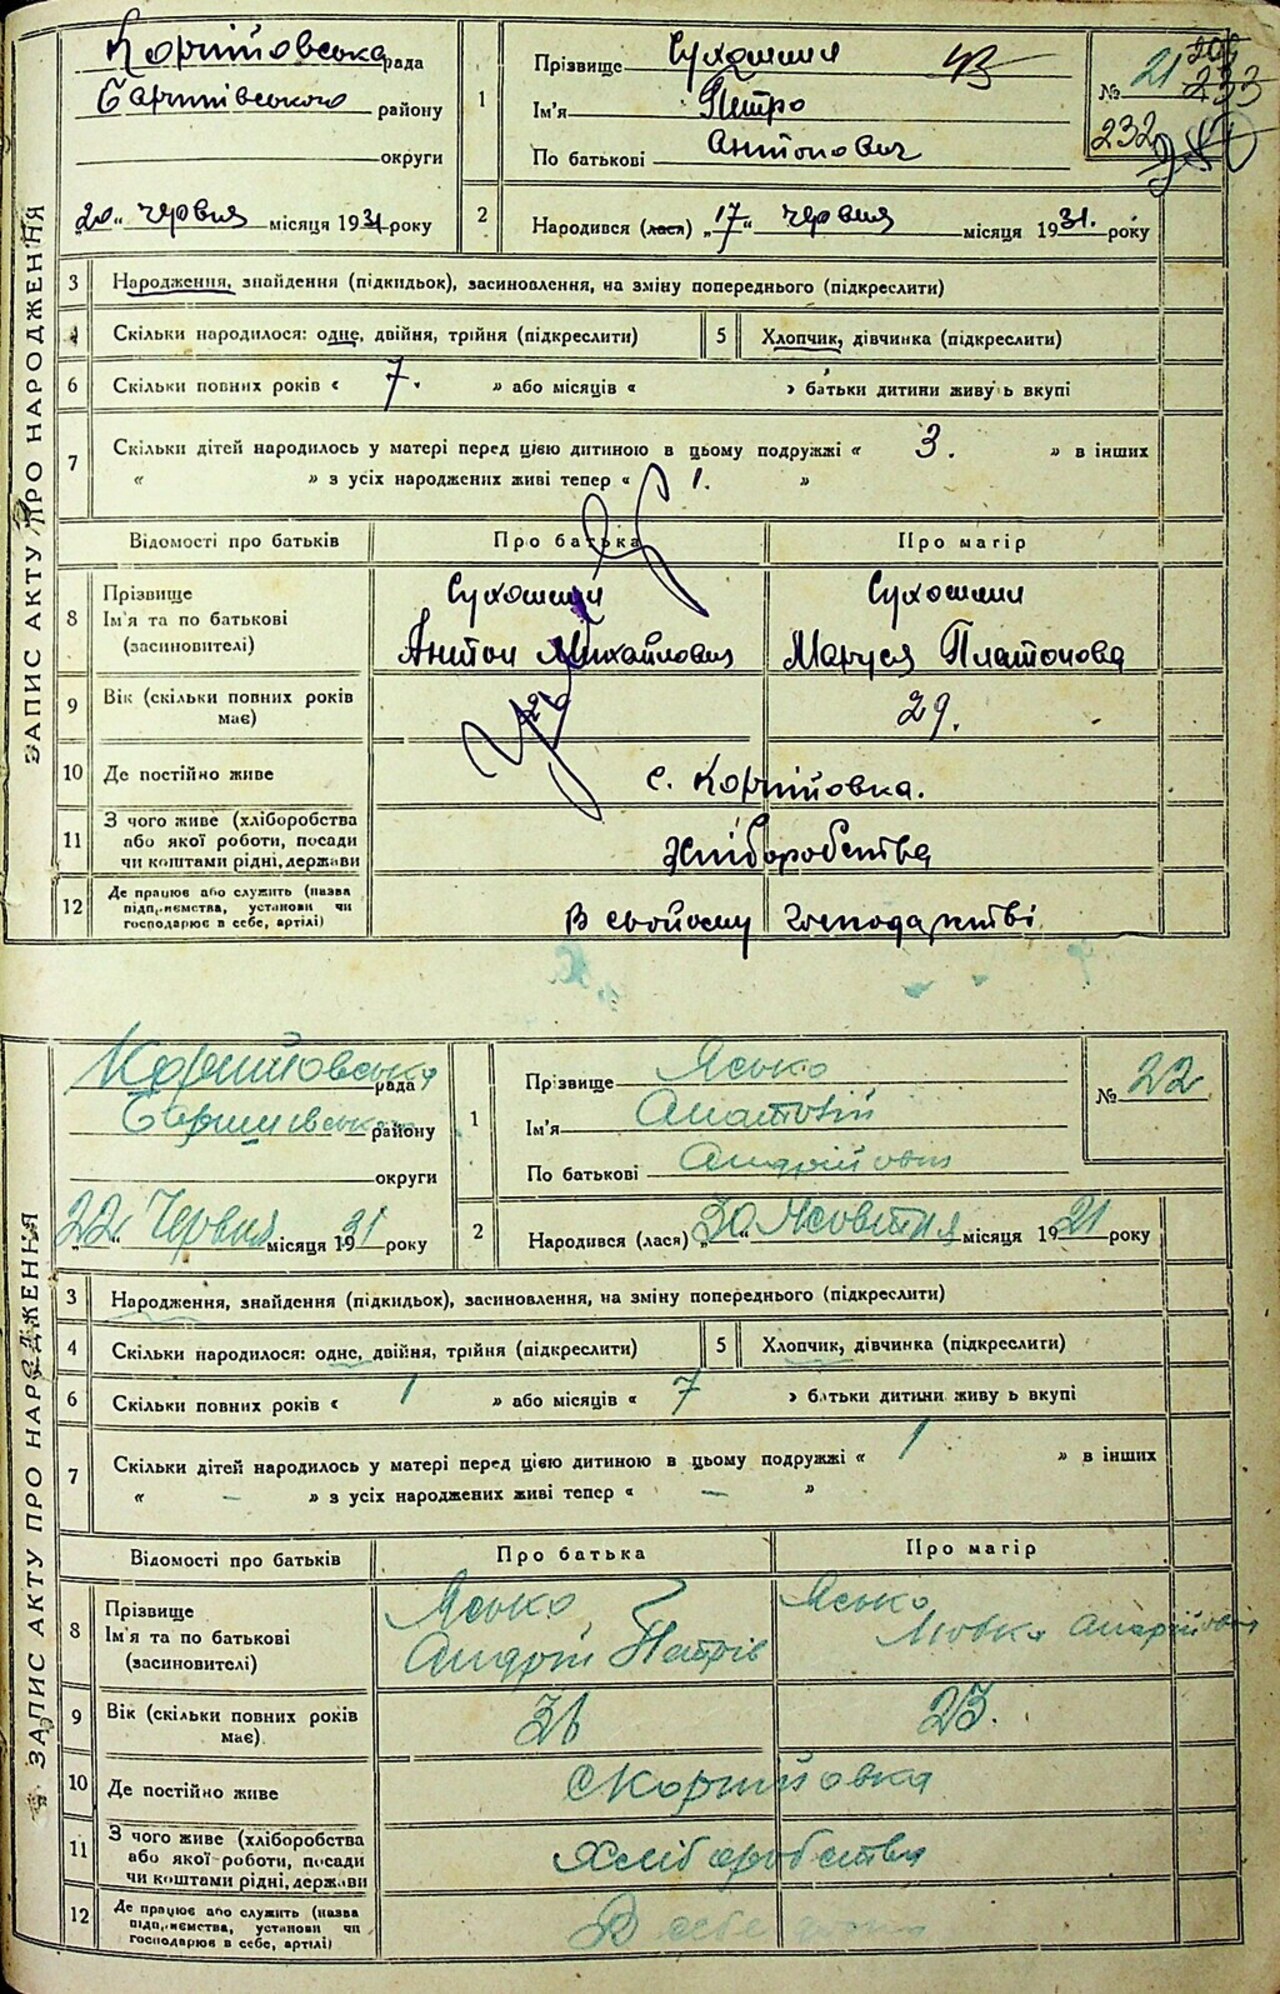 ЗАПИС АКТУ ПРО НАРОДЖЕННЯ
Корнійовська рада
району
округи
"20" червня місяця 1931 року
1
Прізвище
Ім'я Петро
По батькові Антонович
№ 21
232
233
2
Народився (лася) „17" червня місяця 1931. року
3 Народження, знайдення (підкидьок), засиновлення, на зміну попереднього (підкреслити)
4 Скільки народилося: одне, двійня, трійня (підкреслити) 5 Хлопчик, дівчинка (підкреслити)
6 Скільки повних років « 7. » або місяців « » батьки дитини живуть вкупі
7 Скільки дітей народилось у матері перед цією дитиною в цьому подружжі « 3. » в інших
« » з усіх народжених живі тепер « 1. »
Відомості про батьків Про батька Про матір
8 Прізвище
Ім'я та по батькові Антон Михайлович Маруся Платонова
(засиновителі)
9 Вік (скільки повних років має) 29 29.
10 Де постійно живе с. Корнійовка.
11 З чого живе (хліборобства
або якої роботи, посади Хліборобства
чи коштами рідні, держави
12 Де працює або служить (назва
підприємства, установи чи
господарює в себе, артілі) В свойому господарстві.
ЗАПИС АКТУ ПРО НАРОДЖЕННЯ
Корнійовська рада
району
округи
„22" Червня місяця 1931 року
1
Прізвище Ясько
Ім'я
По батькові
№ 22
2
Народився (лася) „30" Жовтня місяця 1921 року
3 Народження, знайдення (підкидьок), засиновлення, на зміну попереднього (підкреслити)
4 Скільки народилося: одне, двійня, трійня (підкреслити) 5 Хлопчик, дівчинка (підкреслити)
6 Скільки повних років « 1 » або місяців « 7 » батьки дитини живуть вкупі
7 Скільки дітей народилось у матері перед цією дитиною в цьому подружжі « 1 » в інших
« – » з усіх народжених живі тепер « – »
Відомості про батьків Про батька Про матір
8 Прізвище Ясько Ясько
Ім'я та по батькові Андрій Петрів
(засиновителі)
9 Вік (скільки повних років має) 23.
10 Де постійно живе с Корнійовка
11 З чого живе (хліборобства
або якої роботи, посади Хліборобства
чи коштами рідні, держави
12 Де працює або служить (назва
підприємства, установи чи
господарює в себе, артілі) В себе